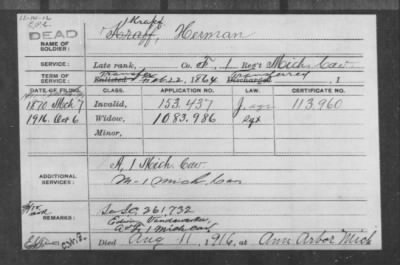 12-14-16
DEAD
Krapf
NAME OF SOLDIER: Kraff, Herman
SERVICE: Late rank, Co. F, 1 Reg't Mich. Cav.
TERM OF SERVICE: Enlisted Transfer Feb. 22, 1864 Discharged Transferred, 1
DATE OF FILING. CLASS. APPLICATION NO. LAW. CERTIFICATE NO.
1870 Mch 7 Invalid, 153.437 113,960
1916. Oct 6 Widow, 1083,986
Minor,
ADDITIONAL SERVICES: A, 1 Mich Cav
M-1 Mich Cav
REMARKS: SC. 261,732
A & F 1 Mich Cav
Died Aug 11, 1916, at Ann Arbor Mich